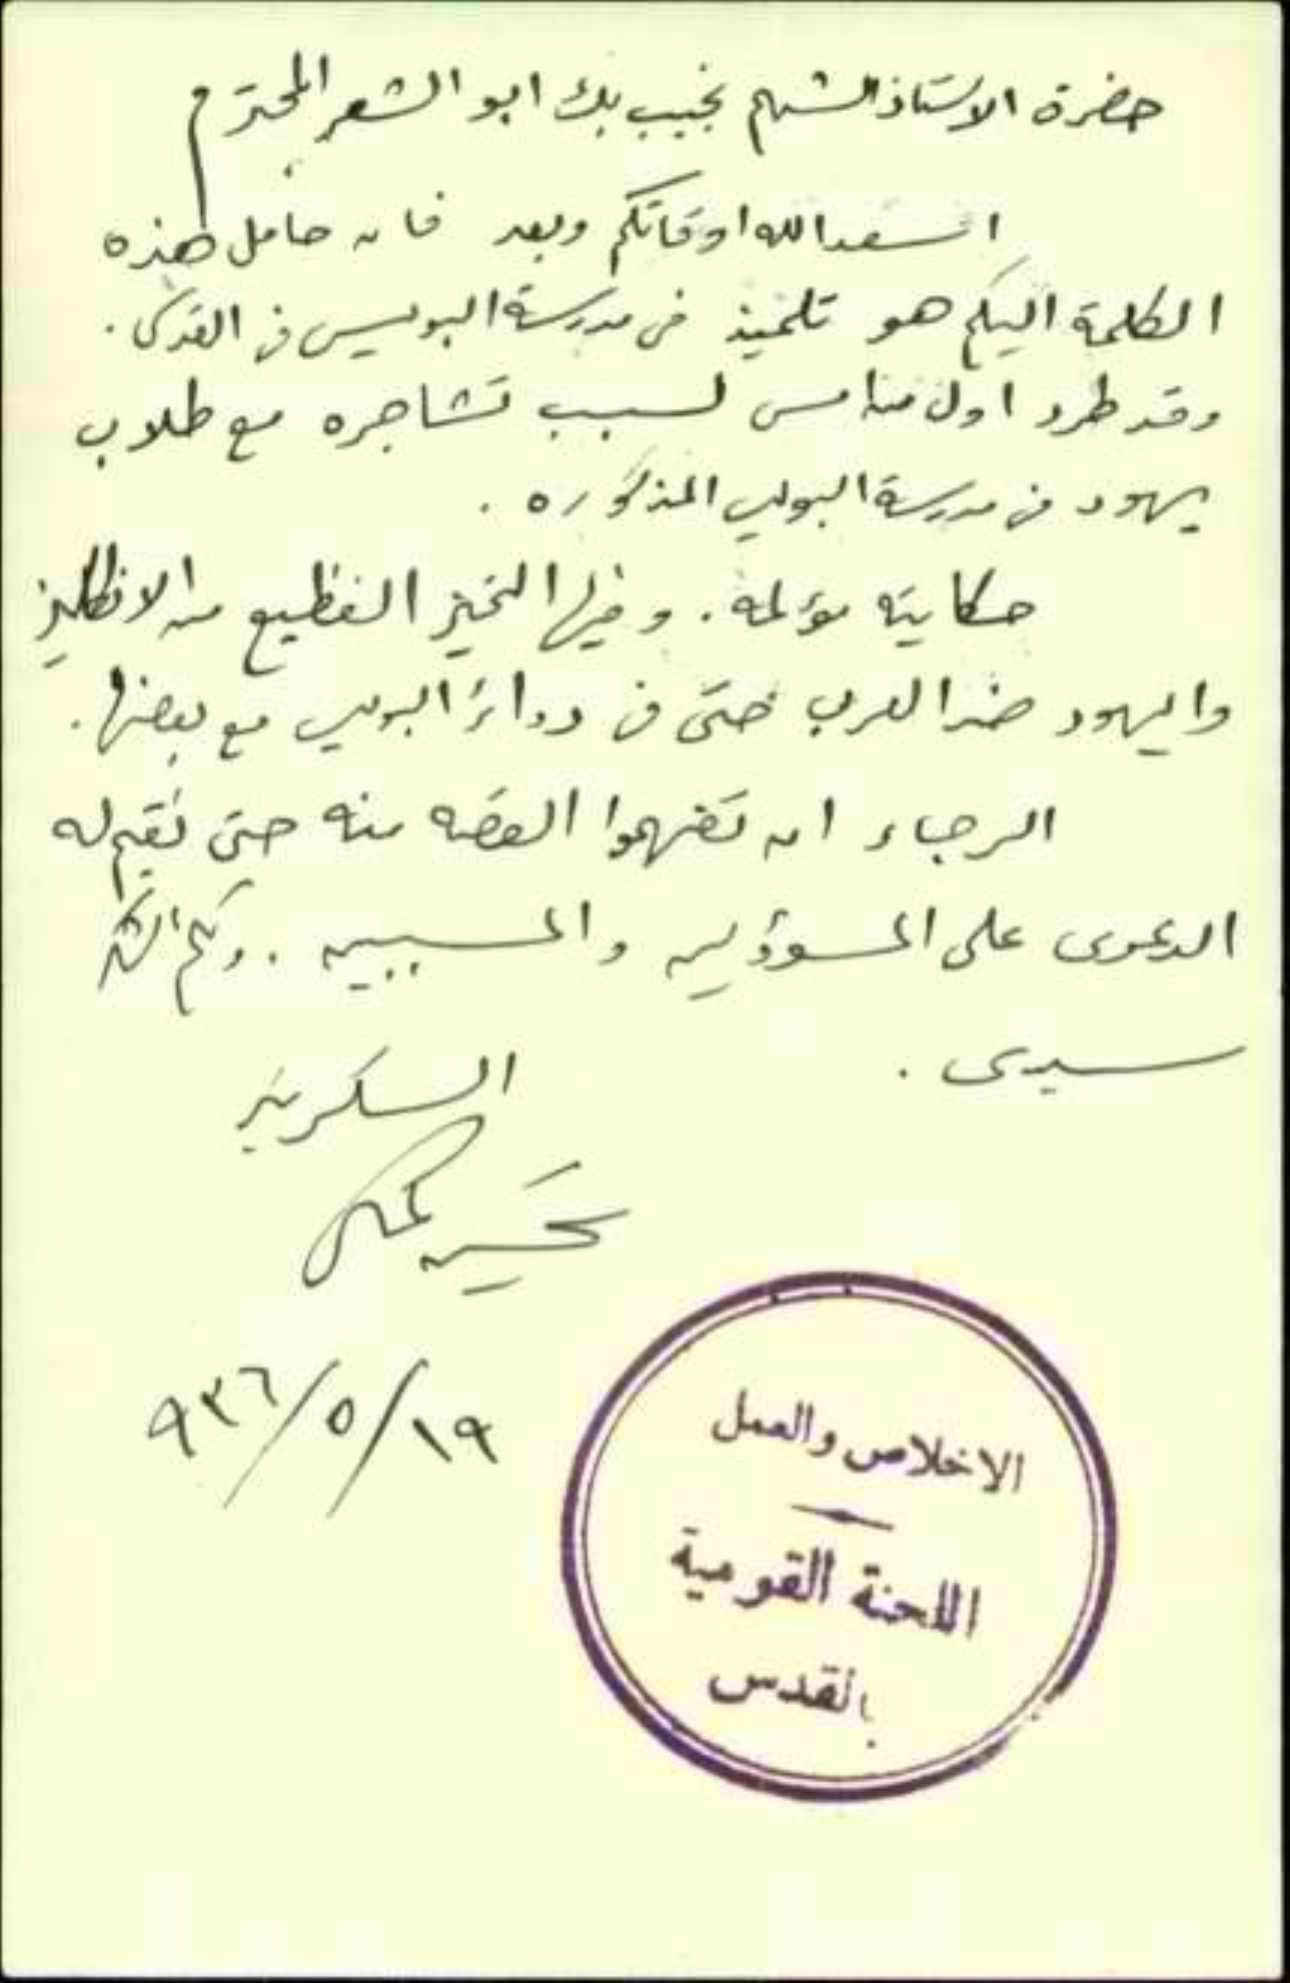 حضرة الاستاذ الشهم نجيب بك ابو الشعر المحترم
اسعد الله اوقاتكم وبعد فان حامل هذه
الكلمة اليكم هو تلميذ في مدرسة البوليس في القدس .
وقد طرد اول من امس لسبب تشاجره مع طلاب
يهود في مدرسة البوليس المذكوره .
حكايته مؤلمه . وفيها التحيز الفظيع من الانكليز
واليهود ضد العرب حتى في دوائر البوليس مع بعضها .
الرجاء ان تفهموا القصه منه حتى نقيم له
الدعوى على المسؤولين والمسببين . ولكم الشكر
سيدى .
السكرتير
١٩/٥/٩٣٦
الاخلاص والعمل
اللجنة القومية
بالقدس